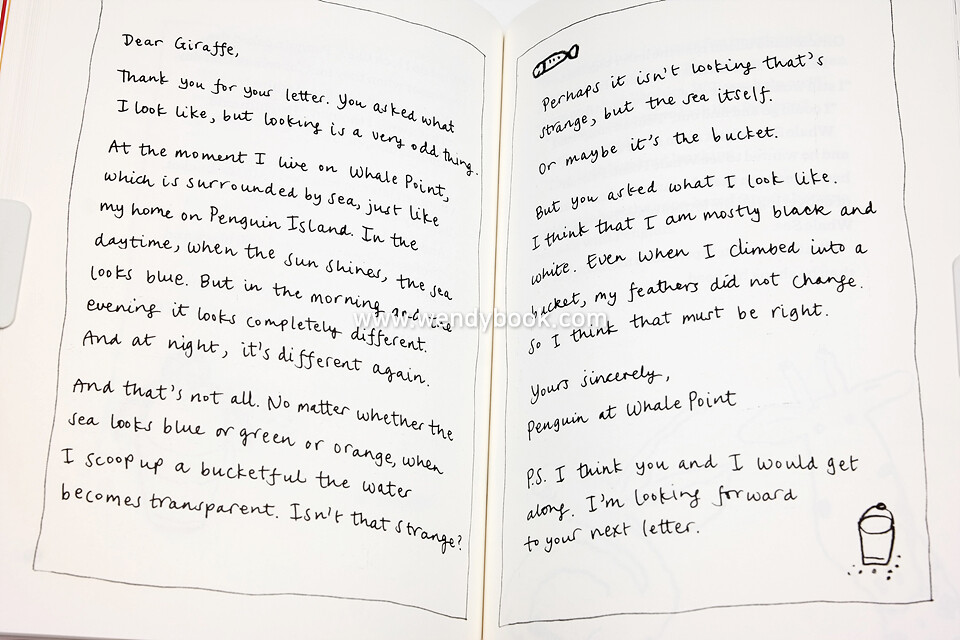 Dear Giraffe,
Thank you for your letter. You asked what
I look like, but looking is a very odd thing.
At the moment I live on Whale Point,
which is surrounded by sea, just like
my home on Penguin Island. In the
daytime, when the sun shines, the sea
looks blue. But in the morning and the
evening it looks completely different.
And at night, it's different again.
And that's not all. No matter whether the
sea looks blue or green or orange, when
I scoop up a bucketful the water
becomes transparent. Isn't that strange?
Perhaps it isn't looking that's
strange, but the sea itself.
Or maybe it's the bucket.
But you asked what I look like.
I think that I am mostly black and
white. Even when I climbed into a
bucket, my feathers did not change.
So I think that must be right.
Yours sincerely,
Penguin at Whale Point
P.S. I think you and I would get
along. I'm looking forward
to your next letter.
www.wendybook.com